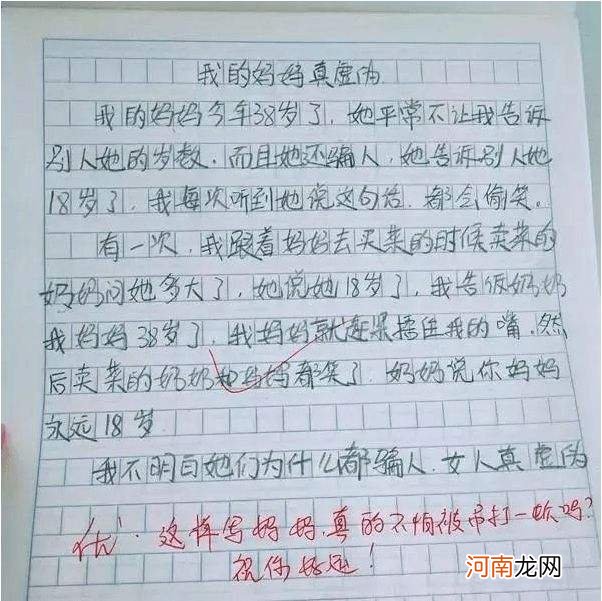 我的妈妈真虚伪
我的妈妈今年38岁了，她平常不让我告诉
别人她的岁数，而且她还骗人，她告诉别人她
18岁了，我每次听到她说这句话，都会偷笑。
有一次，我跟着妈妈去买菜的时候卖菜的
奶奶问她多大了，她说她18岁了，我告诉奶奶
我妈妈38岁了，我妈妈就赶紧捂住我的嘴，然
后卖菜的奶奶和妈妈都笑了，奶奶说你妈妈
永远18岁
我不明白她们为什么都骗人，女人真虚伪
优⁻：这样写妈妈，真的不怕被吊打一顿吗？
祝你好运！
河南龙网